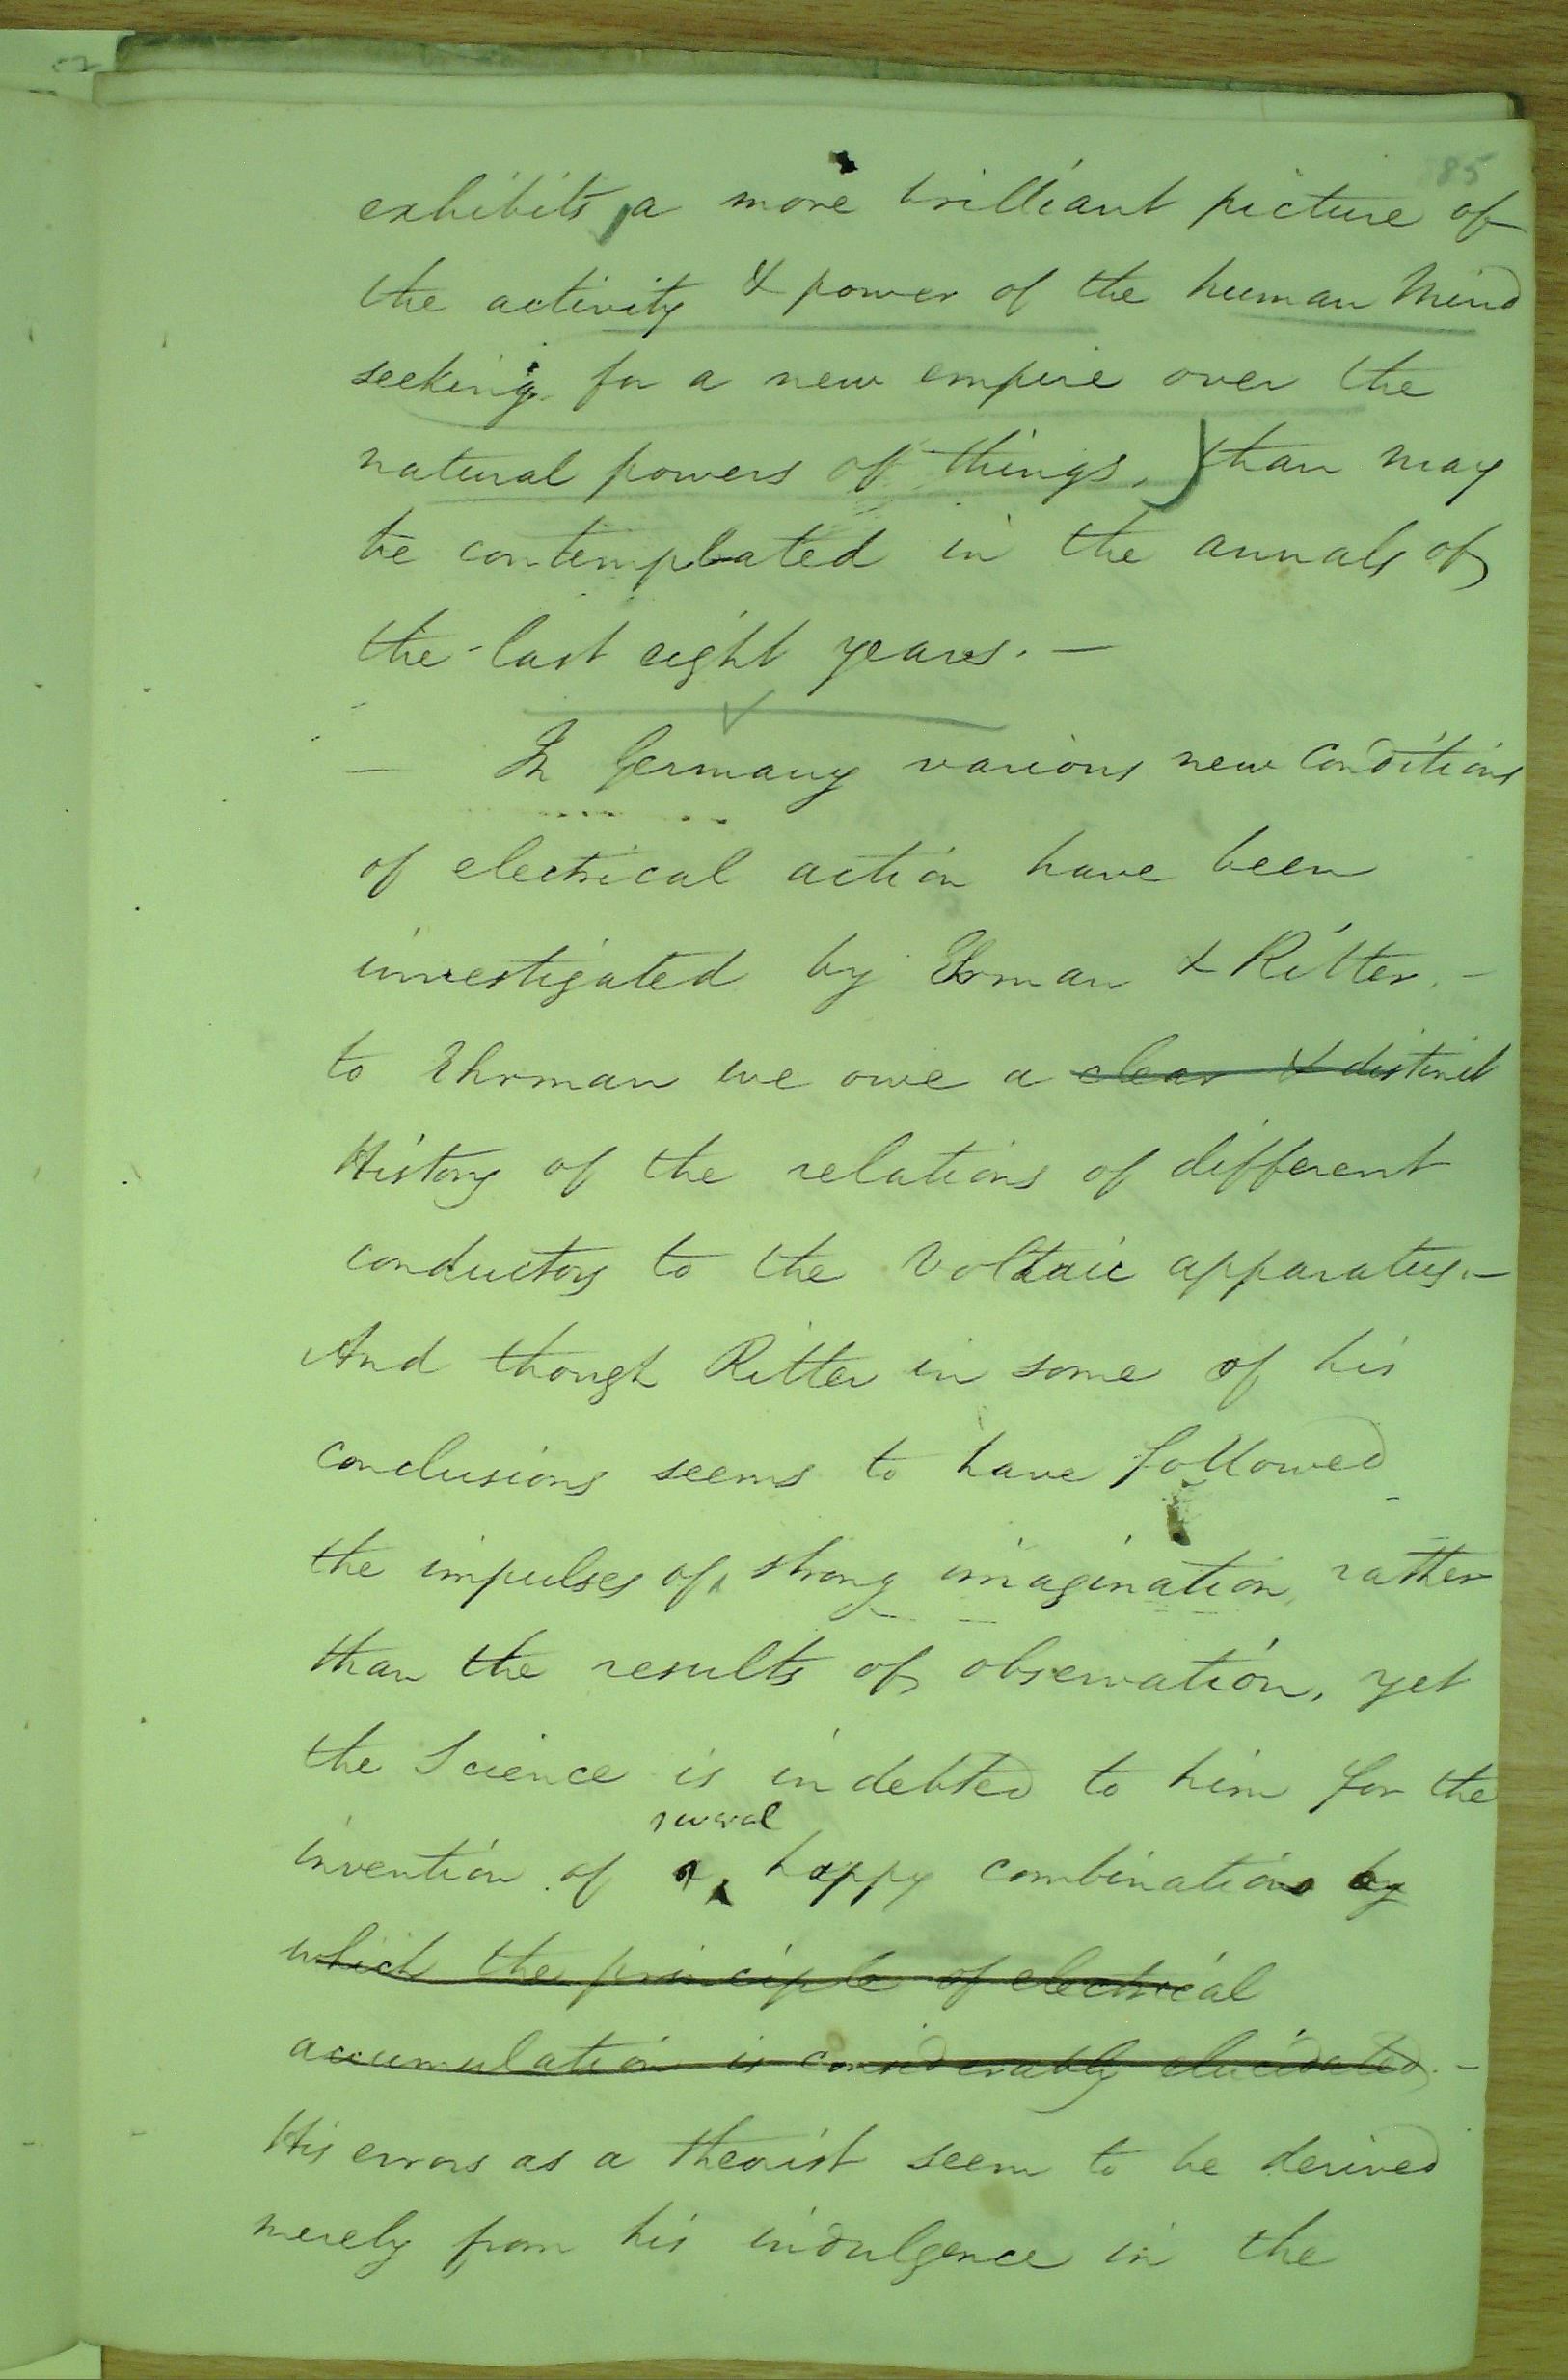 85
exhibits a more brilliant picture of
the activity & power of the human Mind
seeking for a new empire over the
natural powers of things, than may
be contemplated in the annals of
the last eight years. —
— In Germany various new Conditions
of electrical action have been
investigated by Erman & Ritter. -
to Ehrman we owe a clear & distinct
History of the relations of different
conductors to the Voltaic apparatus. -
And though Ritter in some of his
conclusions seems to have followed
the impulses of strong imagination, rather
than the results of observation, yet
the Science is indebted to him for the
several
invention of a happy combinations by
which the principle of electrical
accumulation is considerably elucidated. -
His errors as a theorist seem to be derived
merely from his indulgence in the